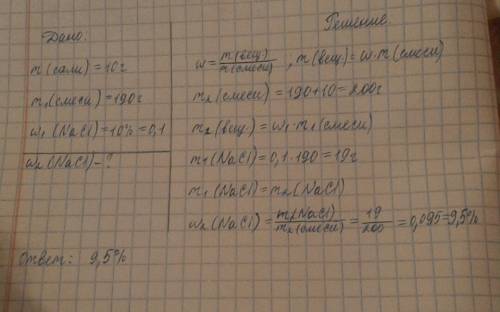 Дано:
m(соли) = 10 г
m₁(смеси) = 190 г
w₁(NaCl) = 10% = 0,1
w₂(NaCl) - ?
Решение
w = m(вещ.)/m(смеси) ; m(вещ.) = w · m(смеси)
m₂(смеси) = 190 + 10 = 200г
m₂(вещ.) = w₁ · m₁(смеси)
m₁(NaCl) = 0,1 · 190 = 19г
m₁(NaCl) = m₂(NaCl)
w₂(NaCl) = m₂(NaCl)/m₂(смеси) = 19/200 = 0,095 = 9,5%
Ответ: 9,5%